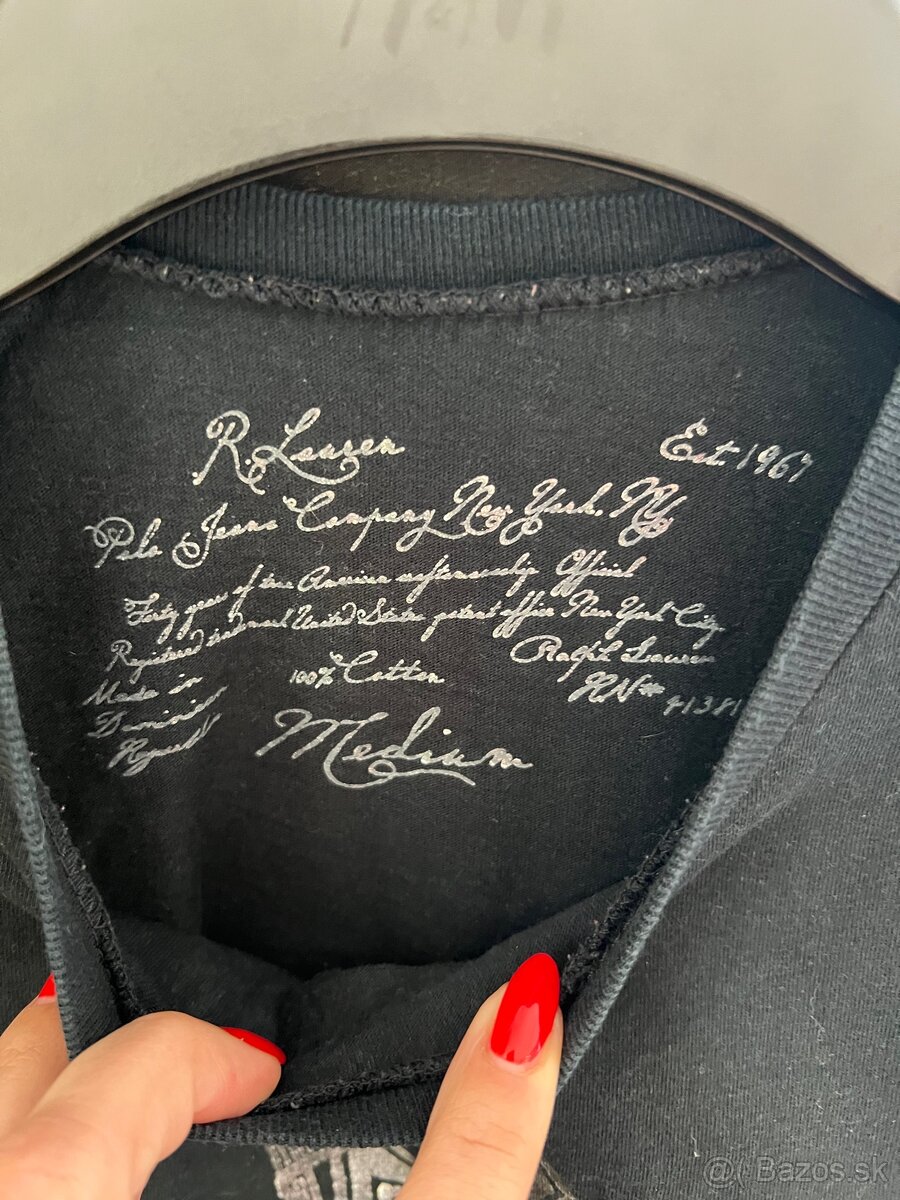 R. Lauren Est. 1967
Polo Jeans Company New York, NY
Forty years of true American craftsmanship Official
Registered trademark United States patent office New York City.
Made in 100% Cotton Ralph Lauren
Dominican RN# 41381
Republic
Medium
@( Bazos.sk